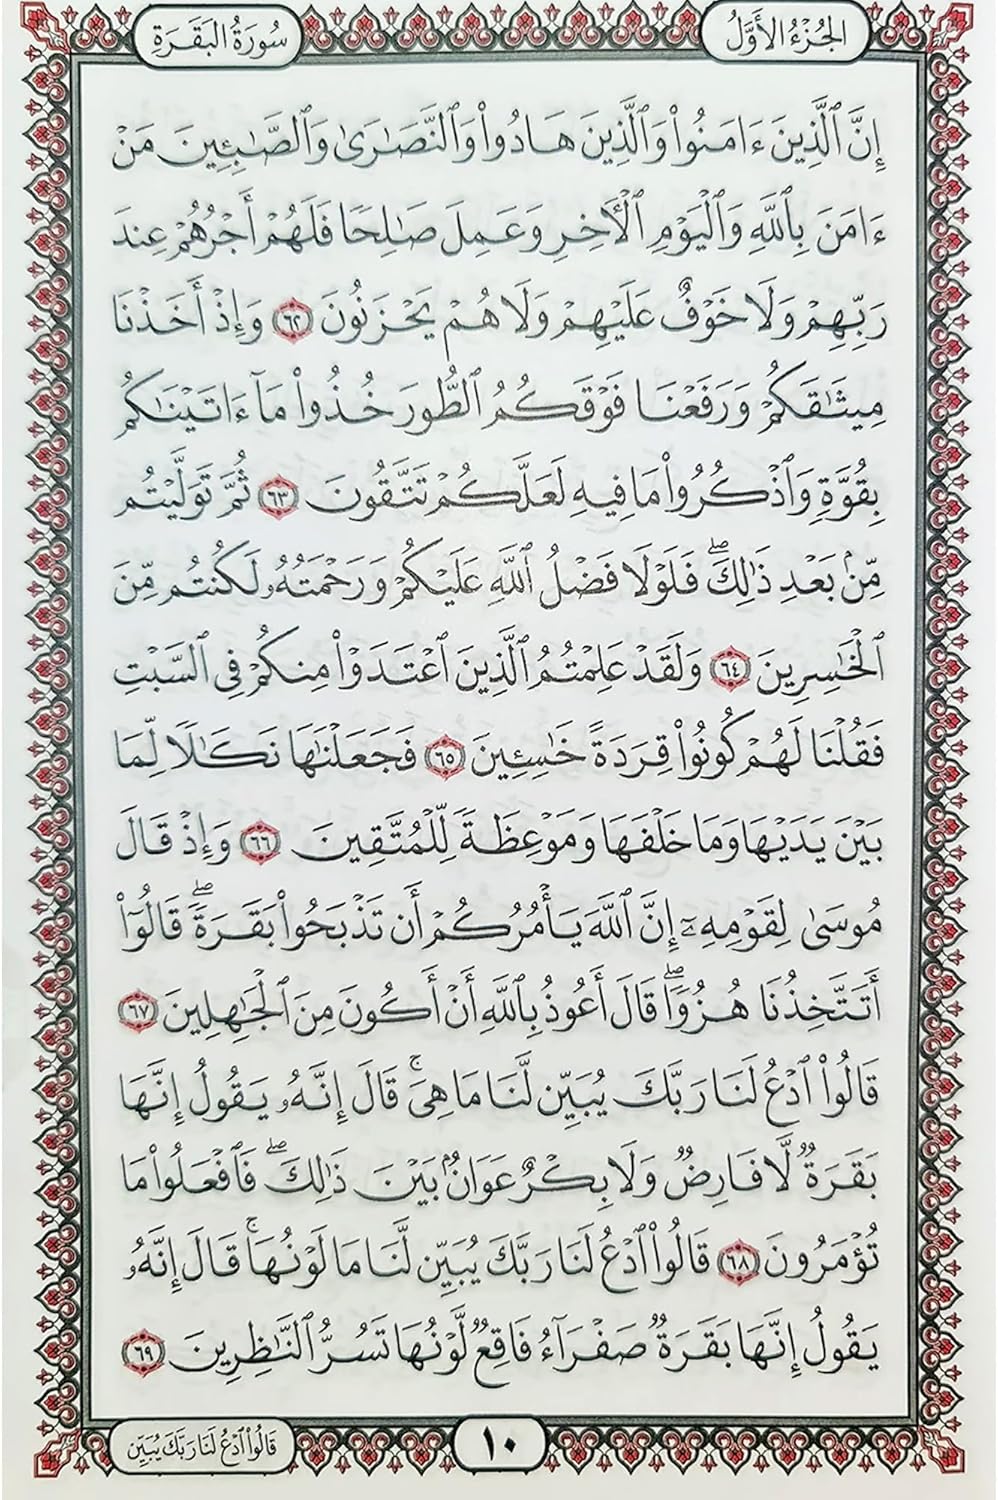 الجُزْءُ الأَوَّلُ
سُورَةُ البَقَرَةِ
إِنَّ ٱلَّذِينَ ءَامَنُوا۟ وَٱلَّذِينَ هَادُوا۟ وَٱلنَّصَـٰرَىٰ وَٱلصَّـٰبِـِٔينَ مَنْ
ءَامَنَ بِٱللَّهِ وَٱلْيَوْمِ ٱلْـَٔاخِرِ وَعَمِلَ صَـٰلِحًا فَلَهُمْ أَجْرُهُمْ عِندَ
رَبِّهِمْ وَلَا خَوْفٌ عَلَيْهِمْ وَلَا هُمْ يَحْزَنُونَ ٦٢ وَإِذْ أَخَذْنَا
مِيثَـٰقَكُمْ وَرَفَعْنَا فَوْقَكُمُ ٱلطُّورَ خُذُوا۟ مَآ ءَاتَيْنَـٰكُم
بِقُوَّةٍ وَٱذْكُرُوا۟ مَا فِيهِ لَعَلَّكُمْ تَتَّقُونَ ٦٣ ثُمَّ تَوَلَّيْتُم
مِّنۢ بَعْدِ ذَٰلِكَ ۖ فَلَوْلَا فَضْلُ ٱللَّهِ عَلَيْكُمْ وَرَحْمَتُهُۥ لَكُنتُم مِّنَ
ٱلْخَـٰسِرِينَ ٦٤ وَلَقَدْ عَلِمْتُمُ ٱلَّذِينَ ٱعْتَدَوْا۟ مِنكُمْ فِى ٱلسَّبْتِ
فَقُلْنَا لَهُمْ كُونُوا۟ قِرَدَةً خَـٰسِـِٔينَ ٦٥ فَجَعَلْنَـٰهَا نَكَـٰلًا لِّمَا
بَيْنَ يَدَيْهَا وَمَا خَلْفَهَا وَمَوْعِظَةً لِّلْمُتَّقِينَ ٦٦ وَإِذْ قَالَ
مُوسَىٰ لِقَوْمِهِۦٓ إِنَّ ٱللَّهَ يَأْمُرُكُمْ أَن تَذْبَحُوا۟ بَقَرَةً ۖ قَالُوٓا۟
أَتَتَّخِذُنَا هُزُوًا ۖ قَالَ أَعُوذُ بِٱللَّهِ أَنْ أَكُونَ مِنَ ٱلْجَـٰهِلِينَ ٦٧
قَالُوا۟ ٱدْعُ لَنَا رَبَّكَ يُبَيِّن لَّنَا مَا هِىَ ۚ قَالَ إِنَّهُۥ يَقُولُ إِنَّهَا
بَقَرَةٌ لَّا فَارِضٌ وَلَا بِكْرٌ عَوَانٌۢ بَيْنَ ذَٰلِكَ ۖ فَٱفْعَلُوا۟ مَا
تُؤْمَرُونَ ٦٨ قَالُوا۟ ٱدْعُ لَنَا رَبَّكَ يُبَيِّن لَّنَا مَا لَوْنُهَا ۚ قَالَ إِنَّهُۥ
يَقُولُ إِنَّهَا بَقَرَةٌ صَفْرَآءُ فَاقِعٌ لَّوْنُهَا تَسُرُّ ٱلنَّـٰظِرِينَ ٦٩
١٠
قَالُوا۟ ٱدْعُ لَنَا رَبَّكَ يُبَيِّن